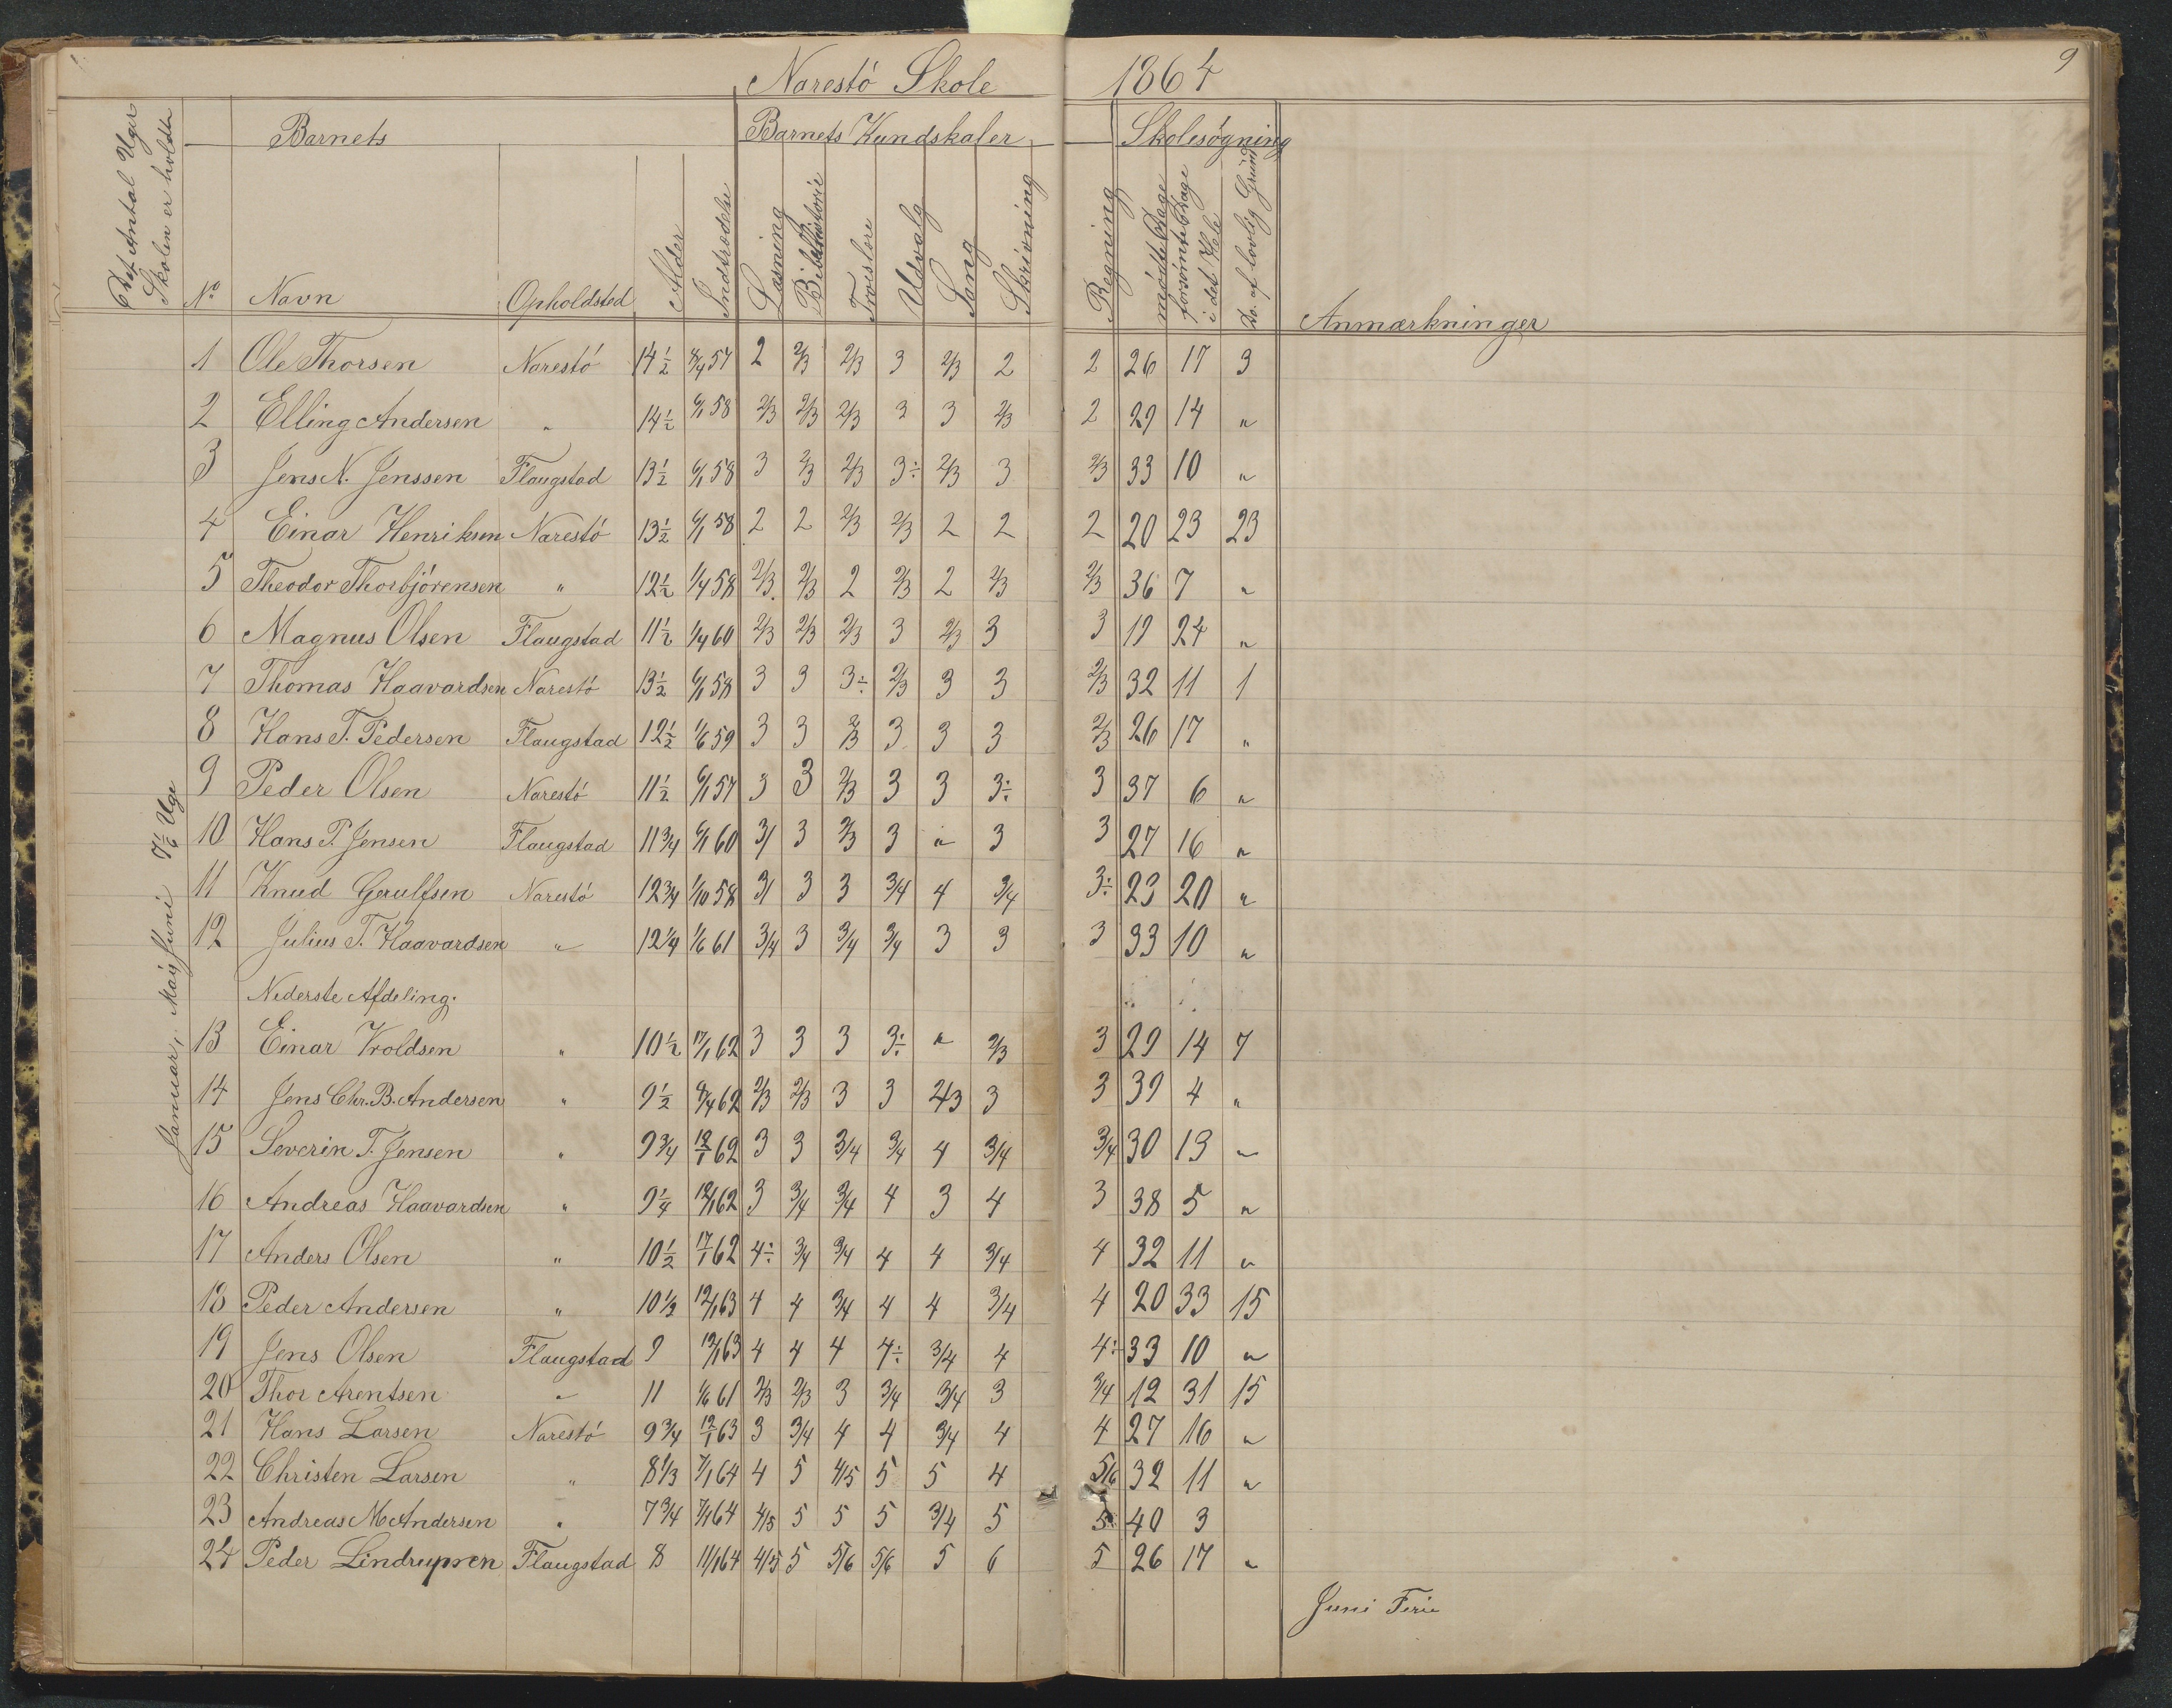 Narestö Skole 1864 9
Det Antal Uger Skolen er holdt
Barnets Barnets Kundskaber Skolesøgning
No Navn Opholdsted Alder Indtrædelse Læsning Bibelhistorie Troeslære Udvalg Sang Skrivning Regning mødte Dage forsömte Dage i det Hele Do. af lovlig Grund Anmærkninger
Januar, Mai, Juni 7 1/6 Uge
1 Ole Thorsen Narestö 14 1/2 8/4 57 2 2/3 2/3 3 2/3 2 2 26 17 3
2 Elling Andersen " 14 1/2 6/1 58 2/3 2/3 2/3 3 3 2/3 2 29 14 "
3 Jens N. Jenssen Flaugstad 13 1/2 6/1 58 3 2/3 2/3 3÷ 2/3 3 2/3 33 10 "
4 Einar Henriksen Narestö 13 1/2 6/1 58 2 2 2/3 2/3 2 2 2 20 23 23
5 Theodor Thorbjörensen " 12 1/2 1/4 58 2/3 2/3 2 2/3 2 2/3 2/3 36 7 "
6 Magnus Olsen Flaugstad 11 1/2 1/4 60 2/3 2/3 2/3 3 2/3 3 3 19 24 "
7 Thomas Haavardsen Narestö 13 1/2 6/1 58 3 3 3÷ 2/3 3 3 2/3 32 11 1
8 Hans T. Pedersen Flaugstad 12 1/2 1/6 59 3 3 2/3 3 3 3 2/3 26 17 "
9 Peder Olsen Narestö 11 1/2 6/1 57 3 3 2/3 3 3 3÷ 3 37 6 "
10 Hans P. Jensen Flaugstad 11 3/4 6/1 60 3/ 3 2/3 3 " 3 3 27 16 "
11 Knud Gerulfsen Narestö 12 3/4 1/10 58 3/ 3 3 3/4 4 3/4 3÷ 23 20 "
12 Julius T. Haavardsen " 12 1/4 1/6 61 3/4 3 3/4 3/4 3 3 3 33 10 "
Nederste Afdeling.
13 Einar Vroldsen " 10 1/2 17/1 62 3 3 3 3÷ " 2/3 3 29 14 7
14 Jens Chr. B. Andersen " 9 1/2 8/4 62 2/3 2/3 3 3 2/3 3 3 39 4 "
15 Severin T. Jensen " 9 3/4 12/1 62 3 3 3/4 3/4 4 3/4 3/4 30 13 "
16 Andreas Haavardsen " 9 1/4 12/1 62 3 3/4 3/4 4 3 4 3 38 5 "
17 Anders Olsen " 10 1/2 17/1 62 4÷ 3/4 3/4 4 4 3/4 4 32 11 "
18 Peder Andersen " 10 1/2 12/1 63 4 4 3/4 4 4 3/4 4 20 33 15
19 Jens Olsen Flaugstad 9 12/1 63 4 4 4 4÷ 3/4 4 4÷ 33 10 "
20 Thor Arentsen " 11 1/6 61 2/3 2/3 3 3/4 3/4 3 3/4 12 31 15
21 Hans Larsen Narestö 9 3/4 12/1 63 3 3/4 4 4 3/4 4 4 27 16 "
22 Christen Larsen " 8 1/3 7/1 64 4 5 4/5 5 5 4 5/6 32 11 "
23 Andreas M Andersen " 7 3/4 7/1 64 4/5 5 5 5 3/4 5 5 40 3
24 Peder Lindrupsen Flaugstad 8 11/1 64 4/5 5 5/6 5/6 5 6 5 26 17 "
Juni Ferie